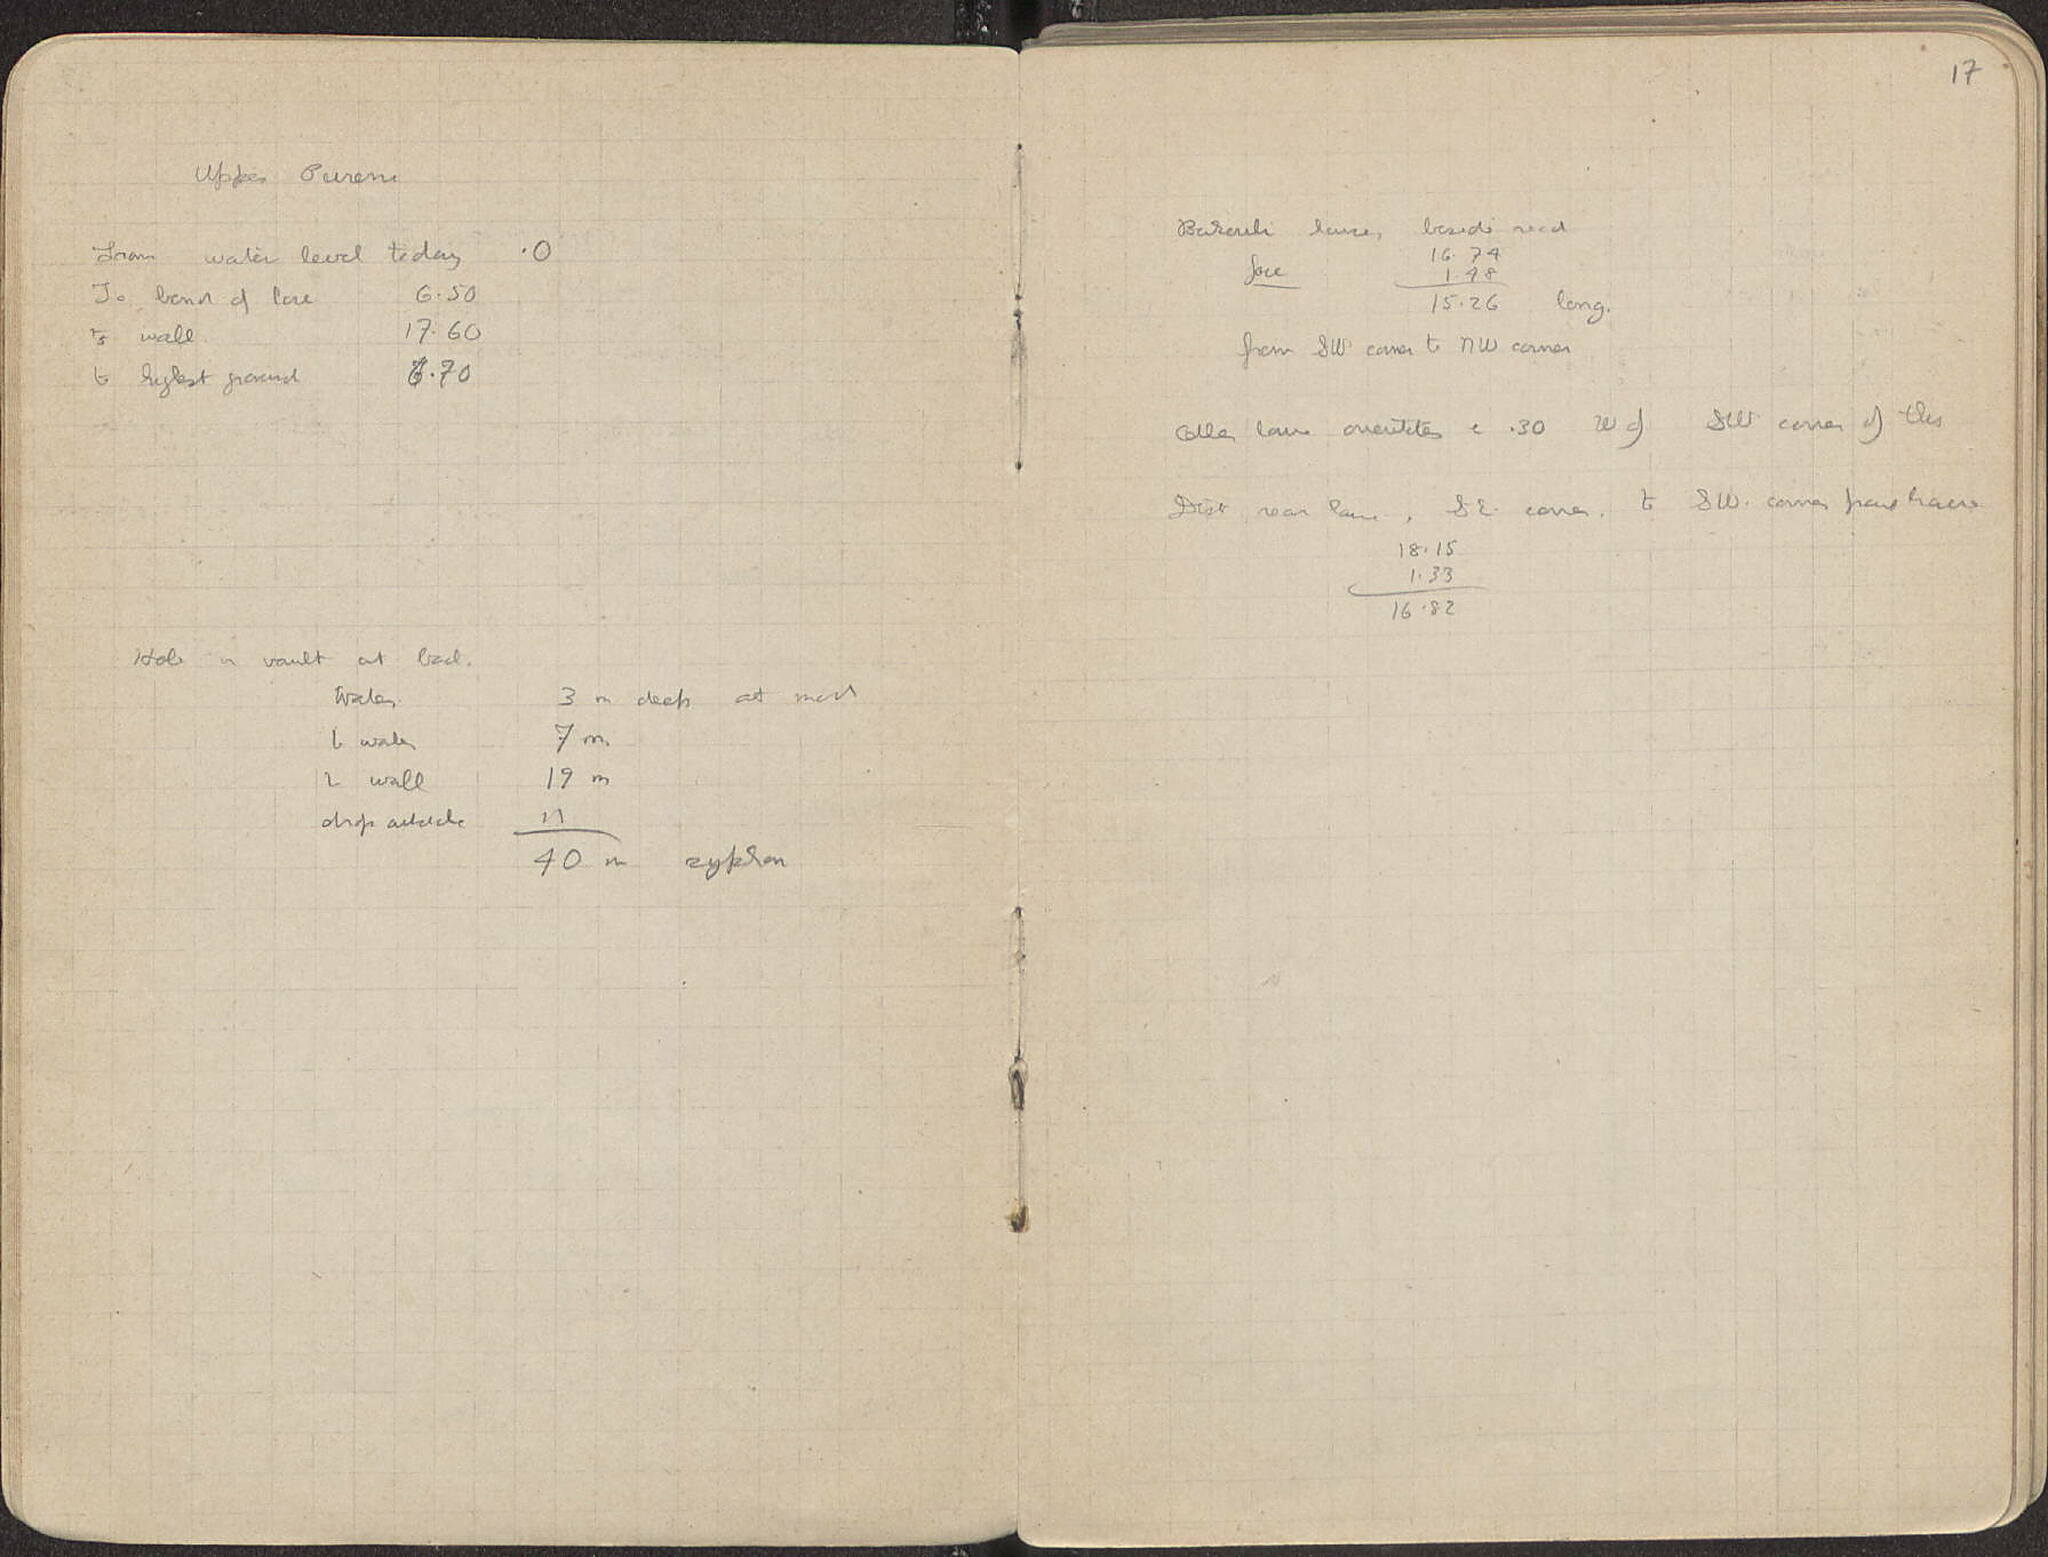 Upper Pirene
From water level today .0
To bend of
to wall 17.60
to highest ground .70
Hole in vault at back.
Water 3 m deep at most
to water 7 m
wall 19 m
drop outside 11
40 m syphon
17
house, beside road
16.74
1.48
15.26 long.
from SW corner to NW corner
Other house c .30 W of SW corner of this
Dist rear house, SE corner. to SW. corner house
18.15
1.33
16.82